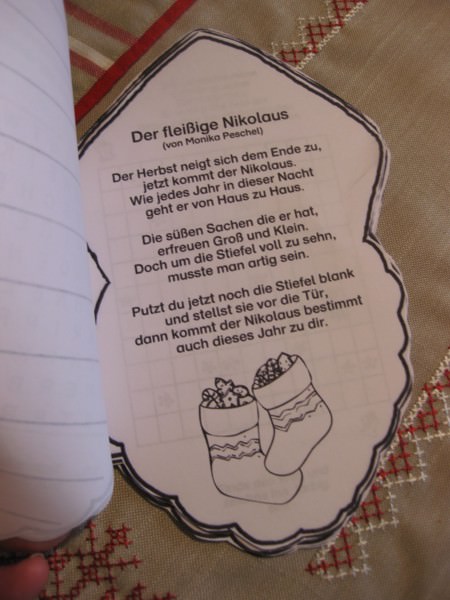 Der fleißige Nikolaus
(von Monika Peschel)
Der Herbst neigt sich dem Ende zu,
jetzt kommt der Nikolaus.
Wie jedes Jahr in dieser Nacht
geht er von Haus zu Haus.
Die süßen Sachen die er hat,
erfreuen Groß und Klein.
Doch um die Stiefel voll zu sehn,
musste man artig sein.
Putzt du jetzt noch die Stiefel blank
und stellst sie vor die Tür,
dann kommt der Nikolaus bestimmt
auch dieses Jahr zu dir.